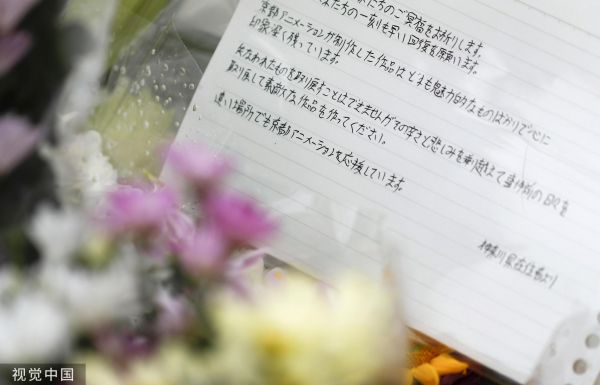 たちのご冥福をお祈りします
たちの一刻も早い回復を願います。
京都アニメーションが制作した作品はどれも魅力的なものばかりで心に
印象深く残っています。
失われたものを取り戻すことはできませんが 辛さと悲しみを乗り越えて の日々を
取り戻して素敵な作品を作ってください。
遠い場所でも京都アニメーションを応援しています。
神奈川県在住者より
视觉中国